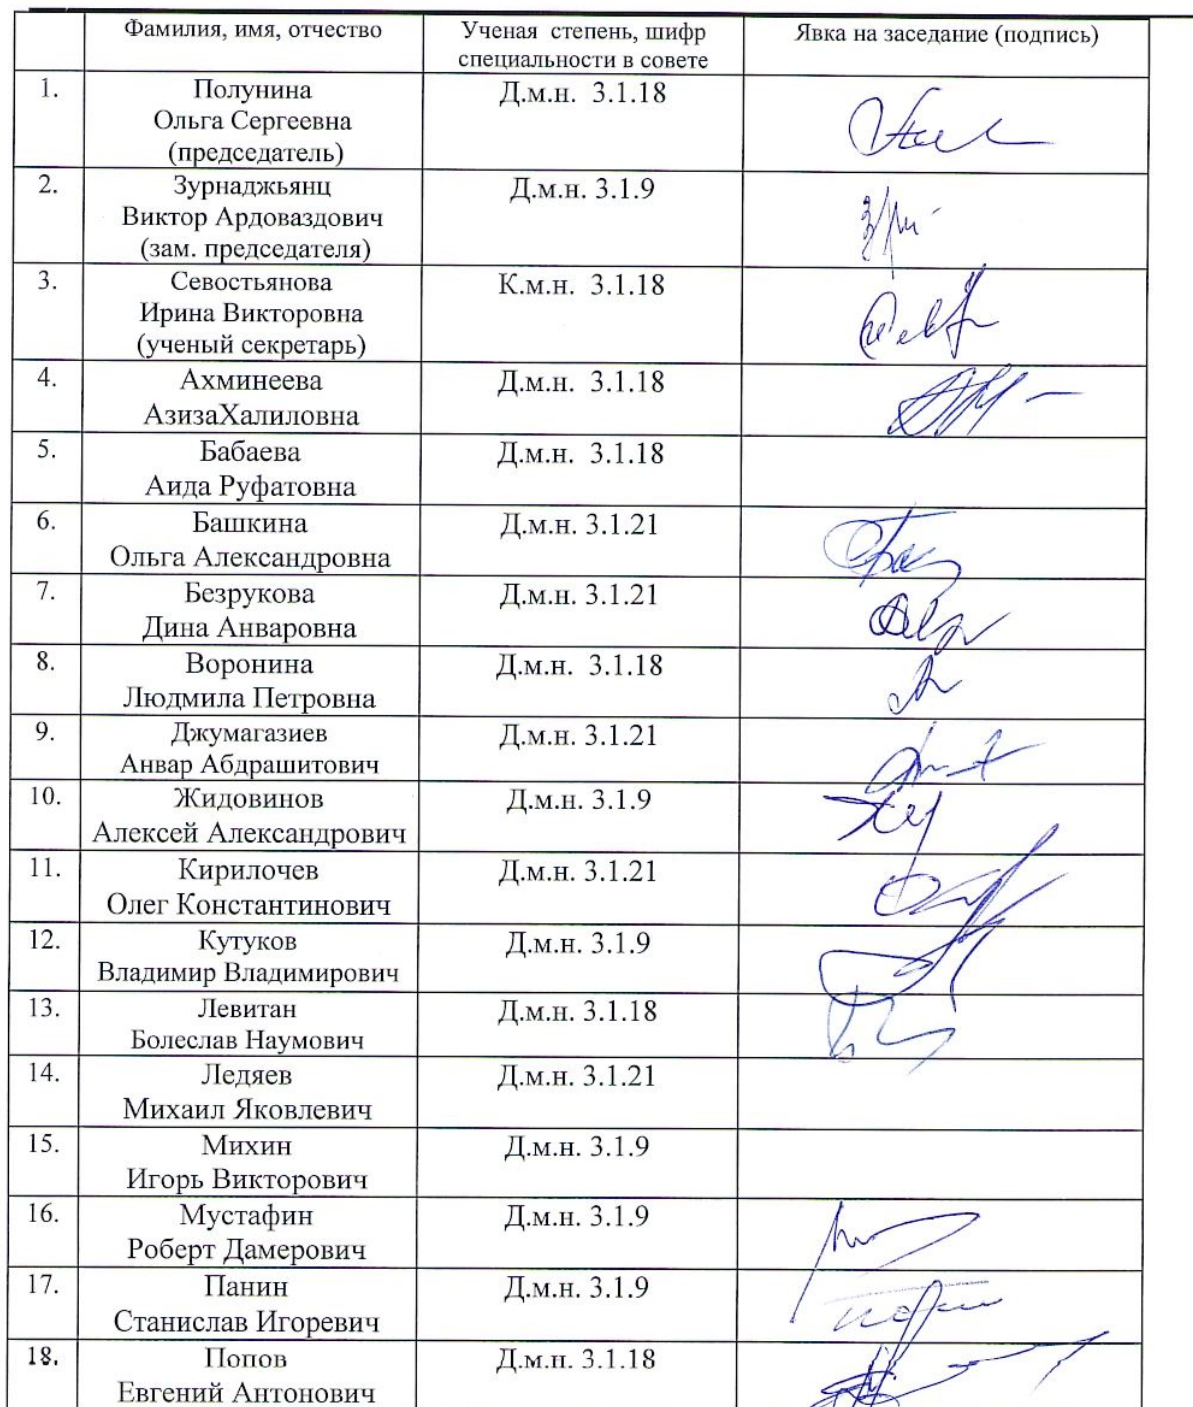 Фамилия, имя, отчество
Ученая степень, шифр
специальности в совете
Явка на заседание (подпись)
1.
Полунина
Ольга Сергеевна
(председатель)
Д.м.н. 3.1.18
2.
Зурнаджьянц
Виктор Ардоваздович
(зам. председателя)
Д.м.н. 3.1.9
3.
Севостьянова
Ирина Викторовна
(ученый секретарь)
К.м.н. 3.1.18
4.
Ахминеева
АзизаХалиловна
Д.м.н. 3.1.18
5.
Бабаева
Аида Руфатовна
Д.м.н. 3.1.18
6.
Башкина
Ольга Александровна
Д.м.н. 3.1.21
7.
Безрукова
Дина Анваровна
Д.м.н. 3.1.21
8.
Воронина
Людмила Петровна
Д.м.н. 3.1.18
9.
Джумагазиев
Анвар Абдрашитович
Д.м.н. 3.1.21
10.
Жидовинов
Алексей Александрович
Д.м.н. 3.1.9
11.
Кирилочев
Олег Константинович
Д.м.н. 3.1.21
12.
Кутуков
Владимир Владимирович
Д.м.н. 3.1.9
13.
Левитан
Болеслав Наумович
Д.м.н. 3.1.18
14.
Ледяев
Михаил Яковлевич
Д.м.н. 3.1.21
15.
Михин
Игорь Викторович
Д.м.н. 3.1.9
16.
Мустафин
Роберт Дамерович
Д.м.н. 3.1.9
17.
Панин
Станислав Игоревич
Д.м.н. 3.1.9
18.
Попов
Евгений Антонович
Д.м.н. 3.1.18